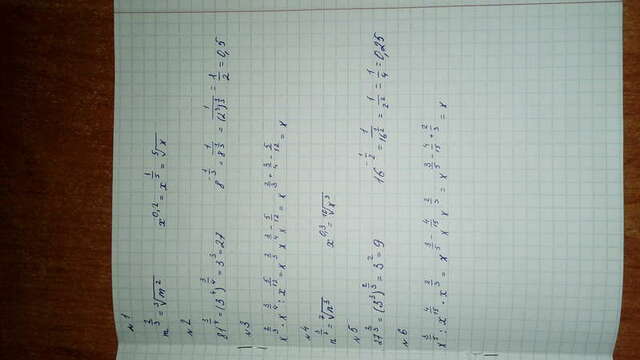 №1
m^(2/3) = ∛m²    x^0,2 = x^(1/5) = ⁵√x
№2
81^(3/4) = (3⁴)^(3/4) = 3³ = 27    8^(-1/3) = 1/8^(1/3) = 1/(2³)^(1/3) = 1/2 = 0,5
№3
x^(2/3) · x^(3/4) : x^(5/12) = x^(2/3) x^(3/4) x^(-5/12) = x^(2/3 + 3/4 - 5/12) = x
№4
n^(3/7) = ⁷√n³    x^0,3 = ¹⁰√x³
№5
27^(2/3) = (3³)^(2/3) = 3² = 9    16^(-1/2) = 1/16^(1/2) = 1/2² = 1/4 = 0,25
№6
x^(3/5) : x^(4/15) · x^(2/3) = x^(3/5) x^(-4/15) x^(2/3) = x^(3/5 - 4/15 + 2/3) = x